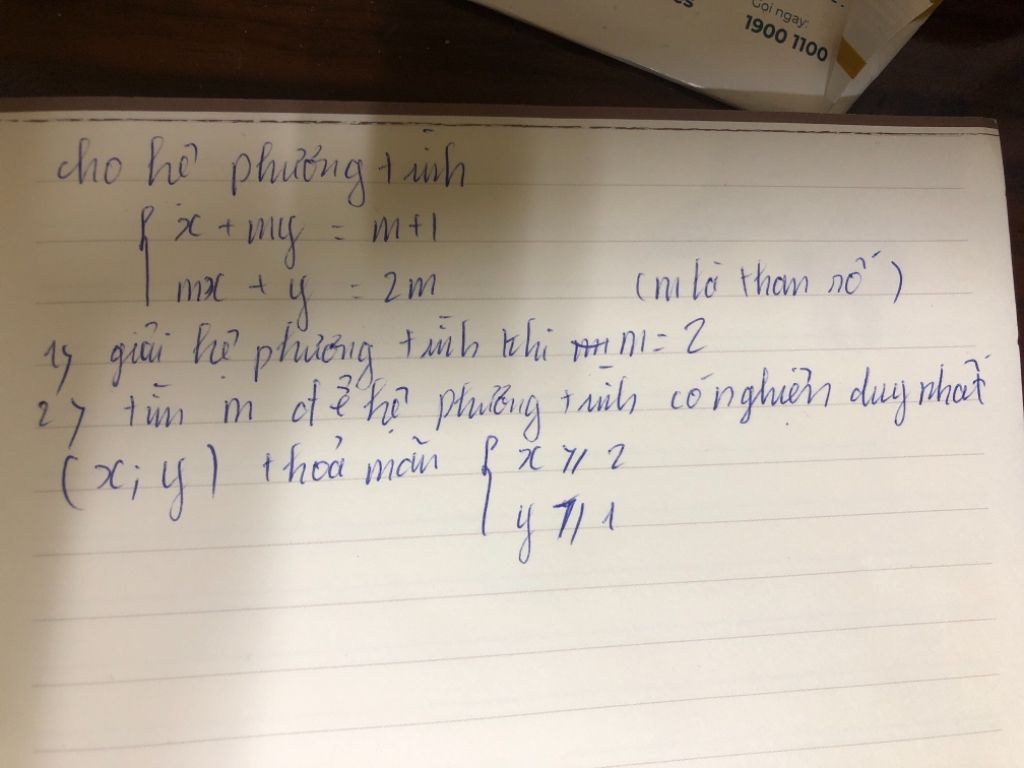 Gọi ngay:
1900 1100
cho hệ phương trình
{ x + my = m+1
mx + y = 2m (m là tham số)
1) giải hệ phương trình khi m = 2
2) tìm m để hệ phương trình có nghiệm duy nhất
(x; y) thoả mãn { x ≥ 2
y ≥ 1